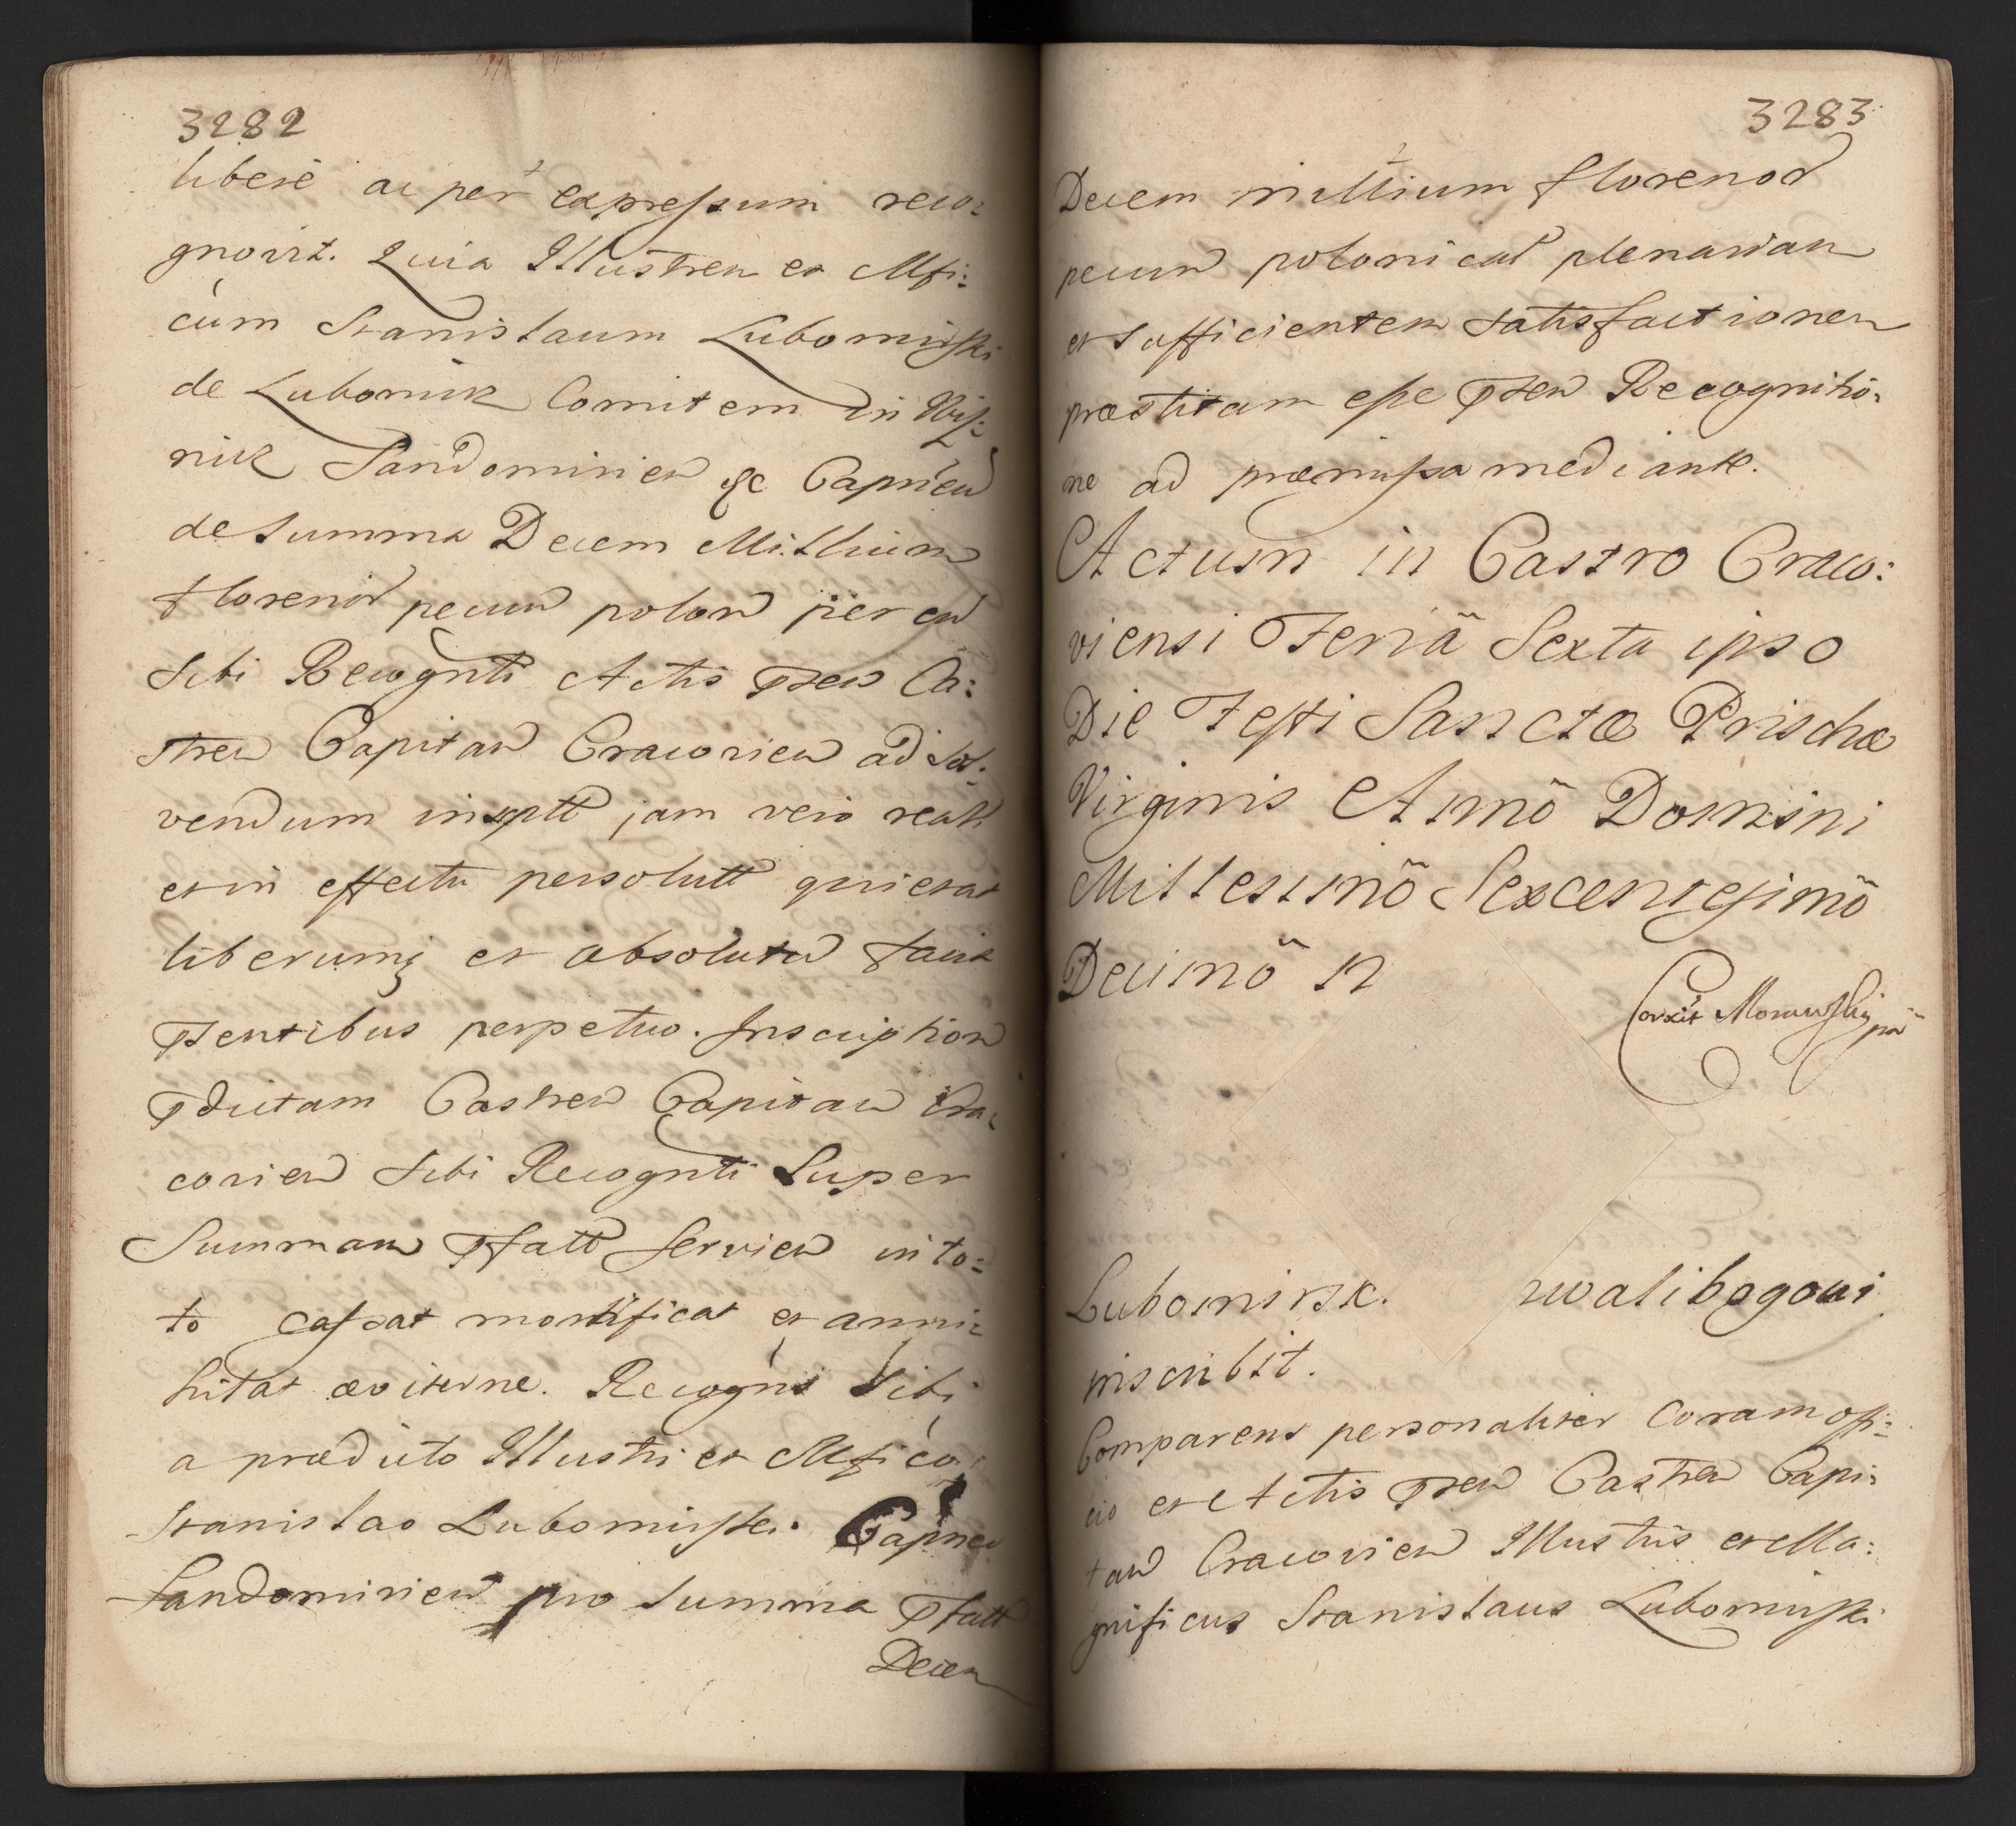 3282
liberè ac per expressum reco:
gnovit. Quia Illustrem et Mfi:
cum Stanislaum Lubomirski
de Lubomirz Comitem in Wiss:
nicz Sandomirien &c Capneū
de summa Decem Millium
florenor pecun polon per eū
sibi Recognti Actis pnten Ca:
stren Capitan Cracovien ad sol:
vendum inscptt jam vero realr
et in effectu persolutt quietat
liberumq et absolutū facit
pntentibus perpetuo. Inscription
pdictam Castren Capitan Cra:
covien sibi Recognti Super
Summam pfatt servien in to:
to cassat mortificat et anni:
hilat æviterne. Recogns sibi
a prædicto Illustri et Mfico
Stanislao Lubomirski Capneo
Sandomirien pro summa pfatt
Decem
3283
Decem millium florenor
pecun polonical plenariam
et sufficientem satisfactionem
præstitam esse pnten Recognitio:
ne ad præmissa mediante.
Actum in Castro Craco:
viensi Feriâ Sexta ipso
Die Festi Sanctæ Prischæ
Virginis Annô Domini
Millesimô Sexcentesimô
Decimô n
Corxit Morawski
pm
Lubomirsk. Twalibogowi
inscribit.
Comparens personaliter Coram offi:
cio et Actis pnten Castren Capi:
tan Cracovien Illustris et Ma:
gnificus Stanislaus Lubomirski